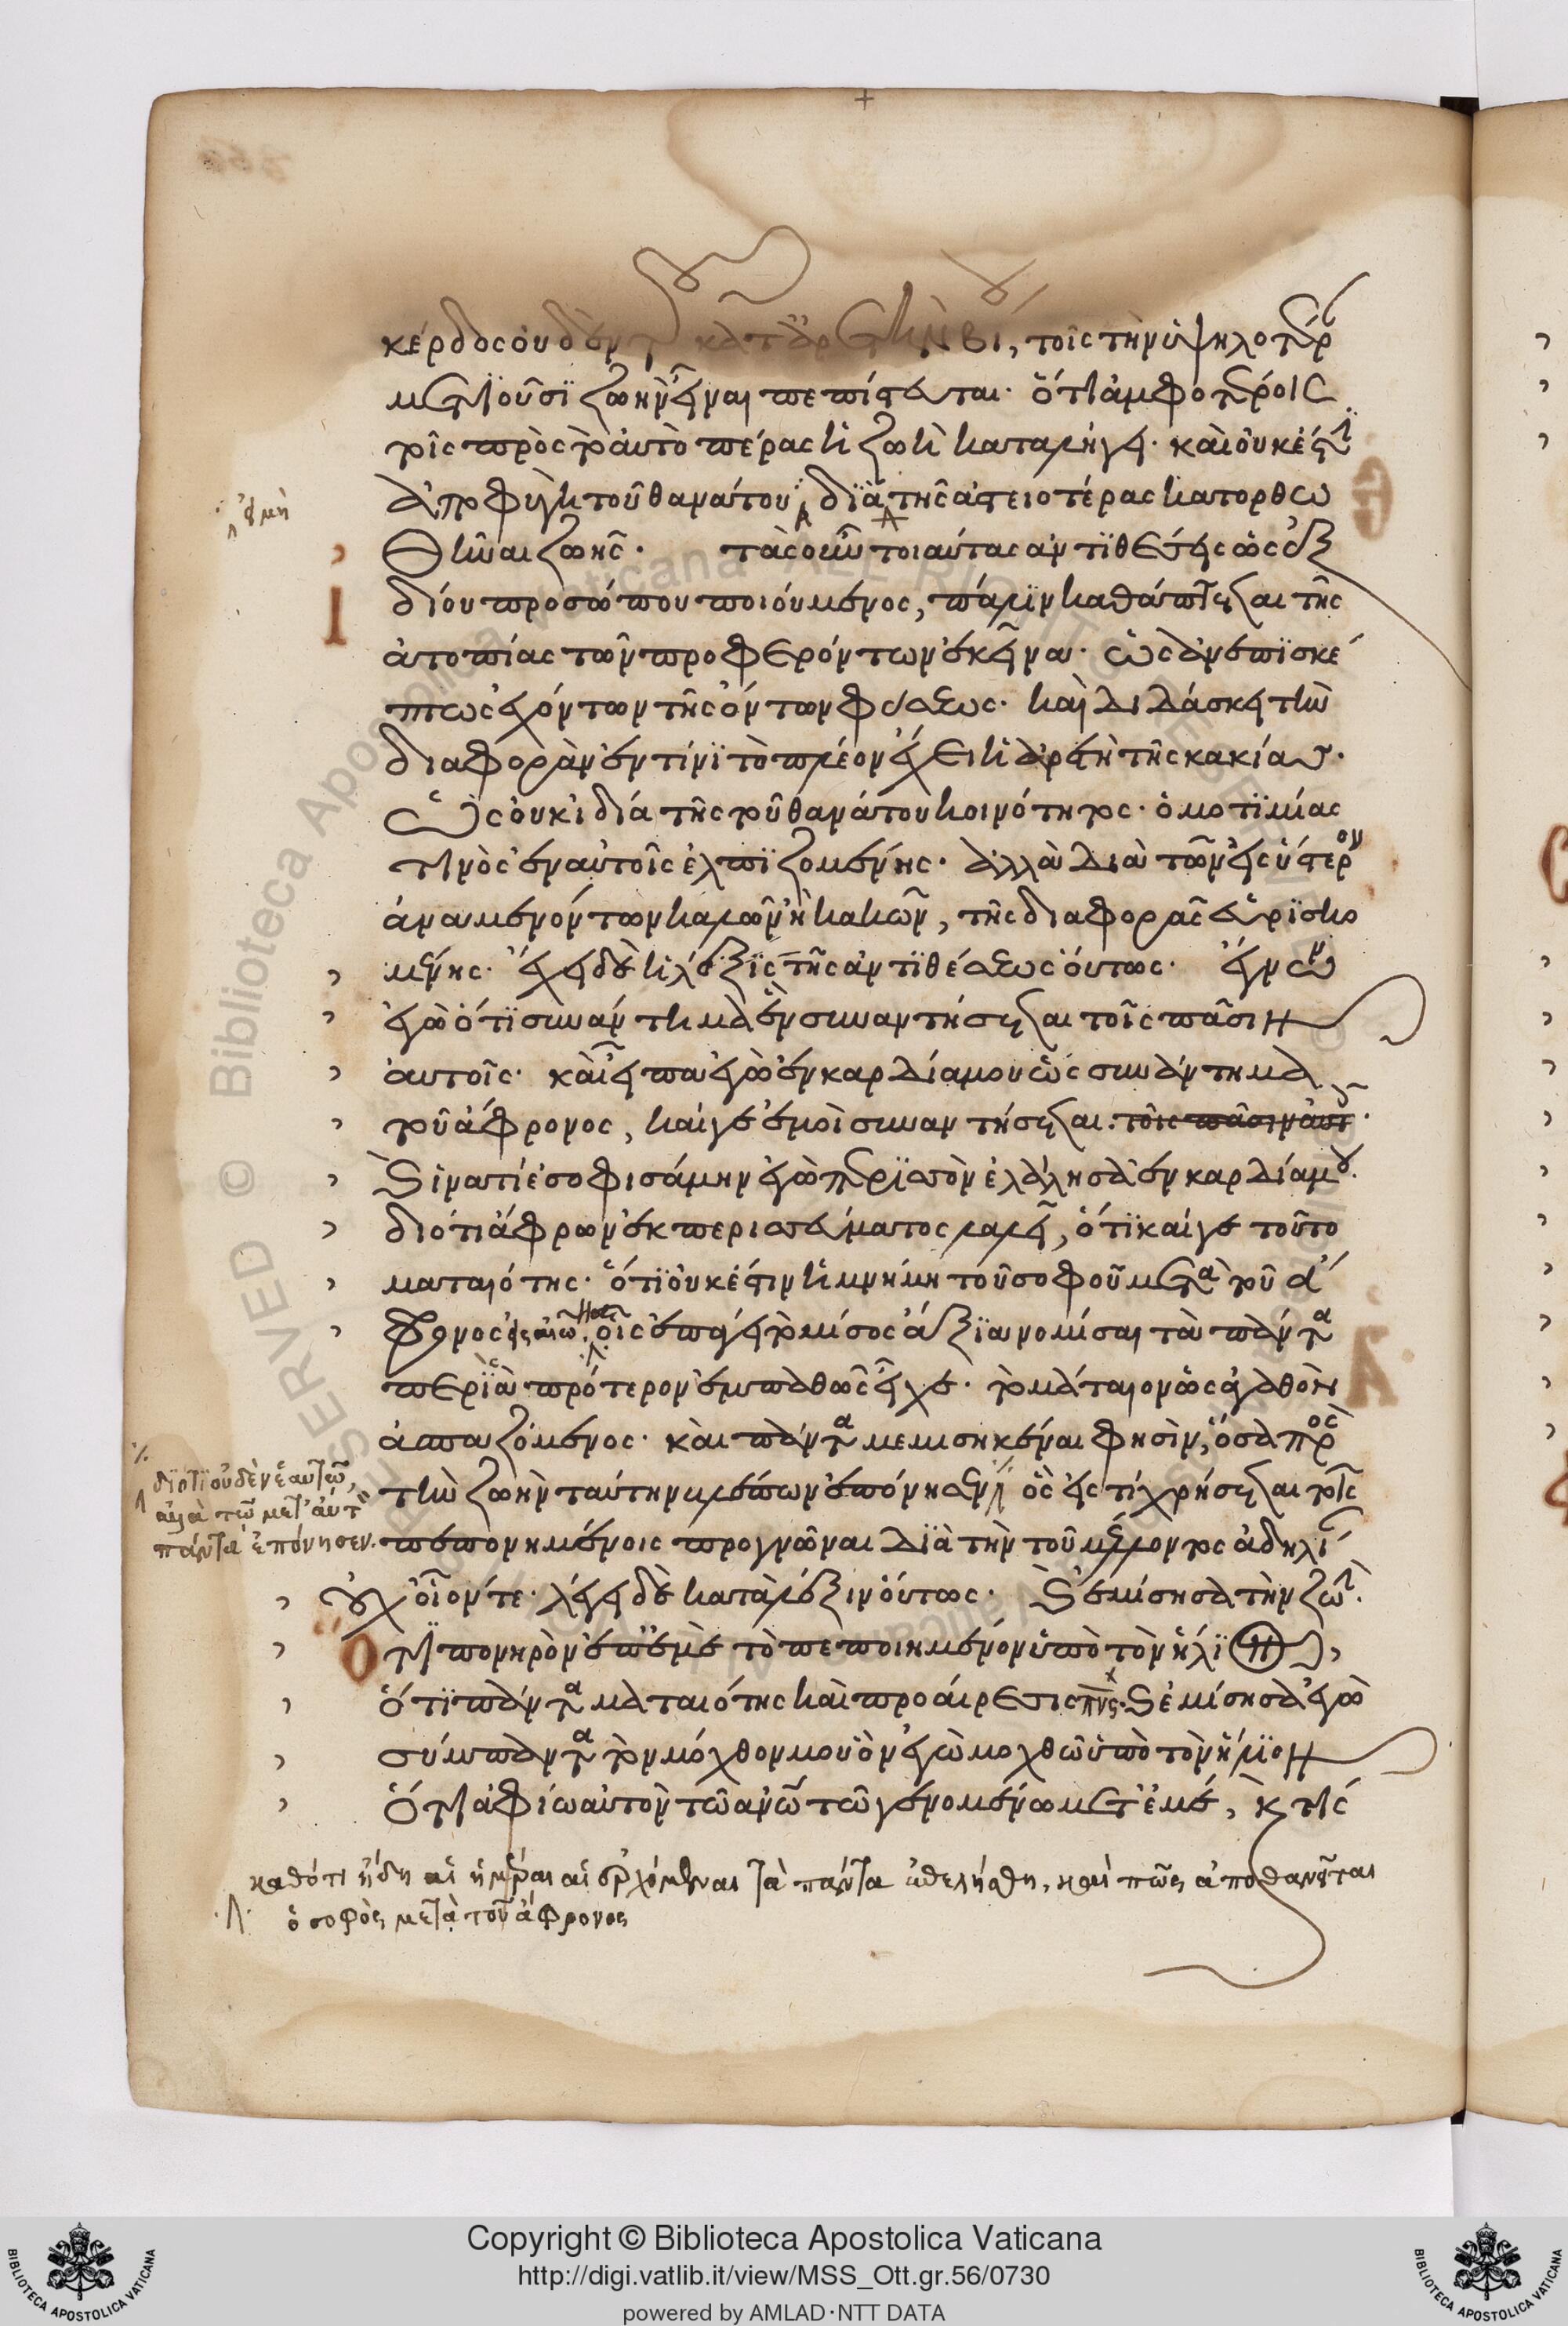 κέρδος οὐδὲν τοῦ κατ' ἀρετὴν βίου, τοῖς τὴν ὑψηλοτέραν
μετιοῦσι ζωὴν εἶναι πεπίστευται· ὅτι ἀμφοτέροις
τοῖς πρὸς τὸ αὐτὸ πέρας ἡ ζωὴ καταλήγει· καὶ οὐκ ἔστιν
ἀποφυγὴ τοῦ θανάτου, διὰ τῆς ἀστειοτέρας κατορθω
θῆναι ζωῆς· τὰς οὖν τοιαύτας ἀντιθέσεις ὡς ἐξ
ἰδίου προσώπου ποιούμενος, πάλιν καθάπτεται τῆς
ἀτοπίας τῶν προφερόντων ἐκεῖνα· ὡς ἀνεπισκέ
πτως ἐχόντων τῆς ὄντων φύσεως· καὶ διδάσκει τὴν
διαφορὰν ἐν τίνι τὸ πλέον ἔχει ἡ ἀρετὴ τῆς κακίας·
ὡς οὐκὶ διά τῆς τοῦ θανάτου κοινότητος· ὁμοτιμίας
τινὸς ἐν αὐτοῖς ἐλπιζομένης· ἀλλὰ διὰ τῶν εἰς ὕστερον
ἀναμενόντων καλῶν ἢ κακῶν, τῆς διαφορᾶς εὑρισκο
μένης· ἔχει δὲ ἡ λέξις τῆς ἀντιθέσεως οὕτως· ἔγνων
ἐγὼ ὅτι συνάντημα ἓν συναντήσεται τοῖς πᾶσιν
αὐτοῖς· καὶ εἶπα ἐγὼ ἐν καρδία μου ὡς συνάντημα
τοῦ ἄφρονος, καίγε ἐμοὶ συναντήσεται. τοῖς πᾶσιν αὐτοῖς·
καὶ ἱνατί ἐσοφισάμην ἐγὼ περισσὸν ἐλάλησα ἐν καρδία μου·
διότι ἄφρων ἐκ περισσεύματος λαλεῖ, ὅτι καίγε τοῦτο
ματαιότης· ὅτι οὐκ ἔστιν ἡ μνήμη τοῦ σοφοῦ μετὰ τοῦ ἄ
φρονος εἰς αἰῶνα, οἷς ἐπάγει τὸ μίσος ἄξια νομίσαι τὰ πάντα
περὶ ἃ πρότερον ἐμπαθῶς εἶχε· τὸ μάταιον ὡς ἀγαθὸν
ἀσπαζόμενος· καὶ πάντα μεμισηκέναι φησὶν, ὅσα πρὸς
τὴν ζωὴν ταύτην βλέπων ἐπόνησεν ὃς εἰς τί χρήσεται τοῖς
πεπονημένοις προγνῶναι διὰ τὴν τοῦ μέλλοντος ἀδηλίαν
οὐχ οἷόν τε· λέγει δὲ κατὰ λέξιν οὕτως· καὶ ἐμίσησα τὴν ζωήν·
ὅτι πονηρὸν ἐπ' ἐμὲ τὸ πεποιημένον ὑπὸ τὸν ἥλιον,
ὅτι πάντα ματαιότης καὶ προαίρεσις πνς· καὶ ἐμίσησα ἐγὼ
σύμπαντα τὸν μόχθον μου ὃν ἐγὼ μοχθῶ ὑπὸ τὸν ἥλιον
ὅτι ἀφίω αὐτὸν τῶ ἀνω τῶ γενομένω μετ' ἐμέ, καὶ τίς
ἐφ μὴ
διότι οὐδὲν ἑαυτῶ,
ἀλλὰ τῶ μετ' αὐτὸν
πάντα ἐπόνησεν.
καθότι ἤδη αἱ ἡμέραι αἱ ἐρχόμεναι τὰ πάντα ἐπελήσθη, καὶ πῶς ἀποθανεῖται
ὁ σοφὸς μετὰ τοῦ ἄφρονος
Copyright © Biblioteca Apostolica Vaticana
http://digi.vatlib.it/view/MSS_Ott.gr.56/0730
powered by AMLAD·NTT DATA